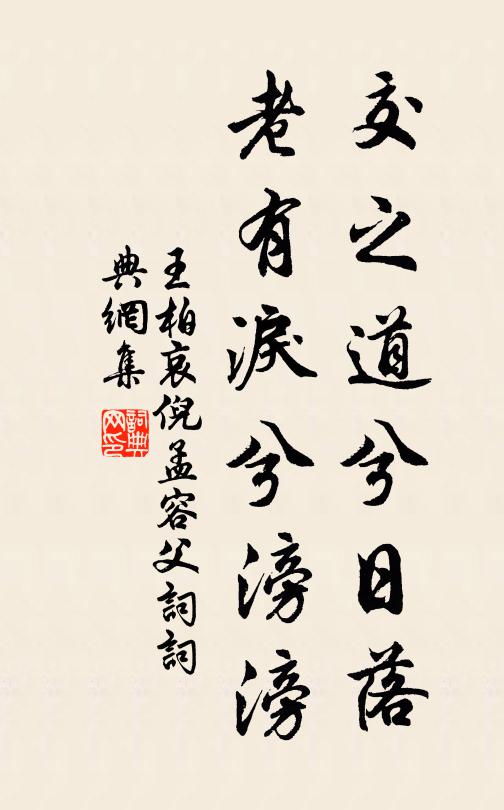 交之道兮日落
老有淚兮滂滂
王柏哀倪孟容父詞詞
典網集
詞典网印